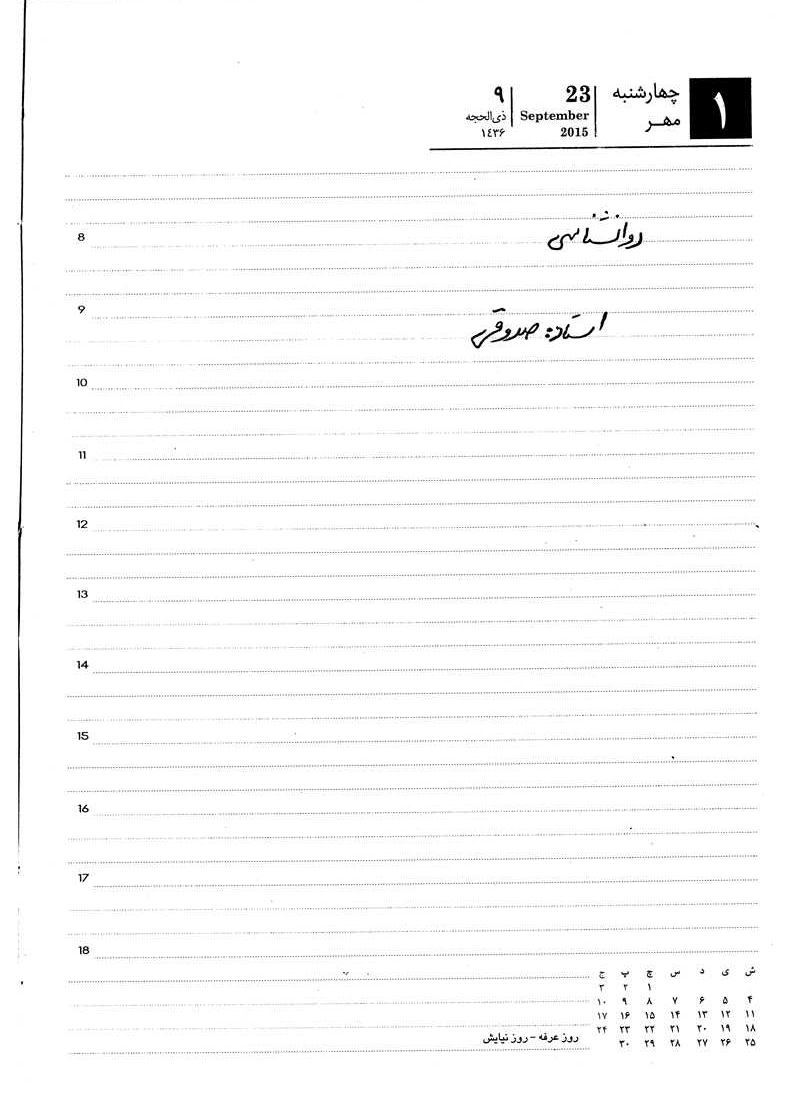 ۱ چهارشنبه 23 ۹
مهر September ذی‌الحجه
2015 ۱٤۳۶
8 روانشناسی
9
استاد: صدوقی
10
11
12
13
14
15
16
17
18
ش ی د س چ پ ج
۱ ۲ ۳
۴ ۵ ۶ ۷ ۸ ۹ ۱۰
۱۱ ۱۲ ۱۳ ۱۴ ۱۵ ۱۶ ۱۷
۱۸ ۱۹ ۲۰ ۲۱ ۲۲ ۲۳ ۲۴
۲۵ ۲۶ ۲۷ ۲۸ ۲۹ ۳۰
روز عرفه - روز نیایش